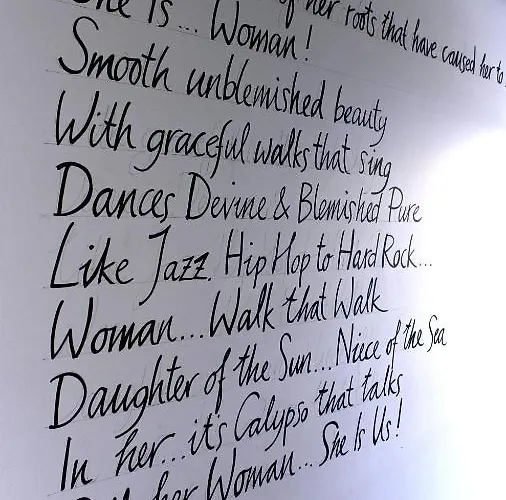 of her roots that have caused her to
She Is... Woman!
Smooth unblemished beauty
With graceful walks that sing
Dances Devine & Blemished Pure
Like Jazz. Hip Hop to Hard Rock...
Woman...Walk that Walk
Daughter of the Sun...Niece of the Sea
In her...it's Calypso that talks
her Woman... She Is Us!